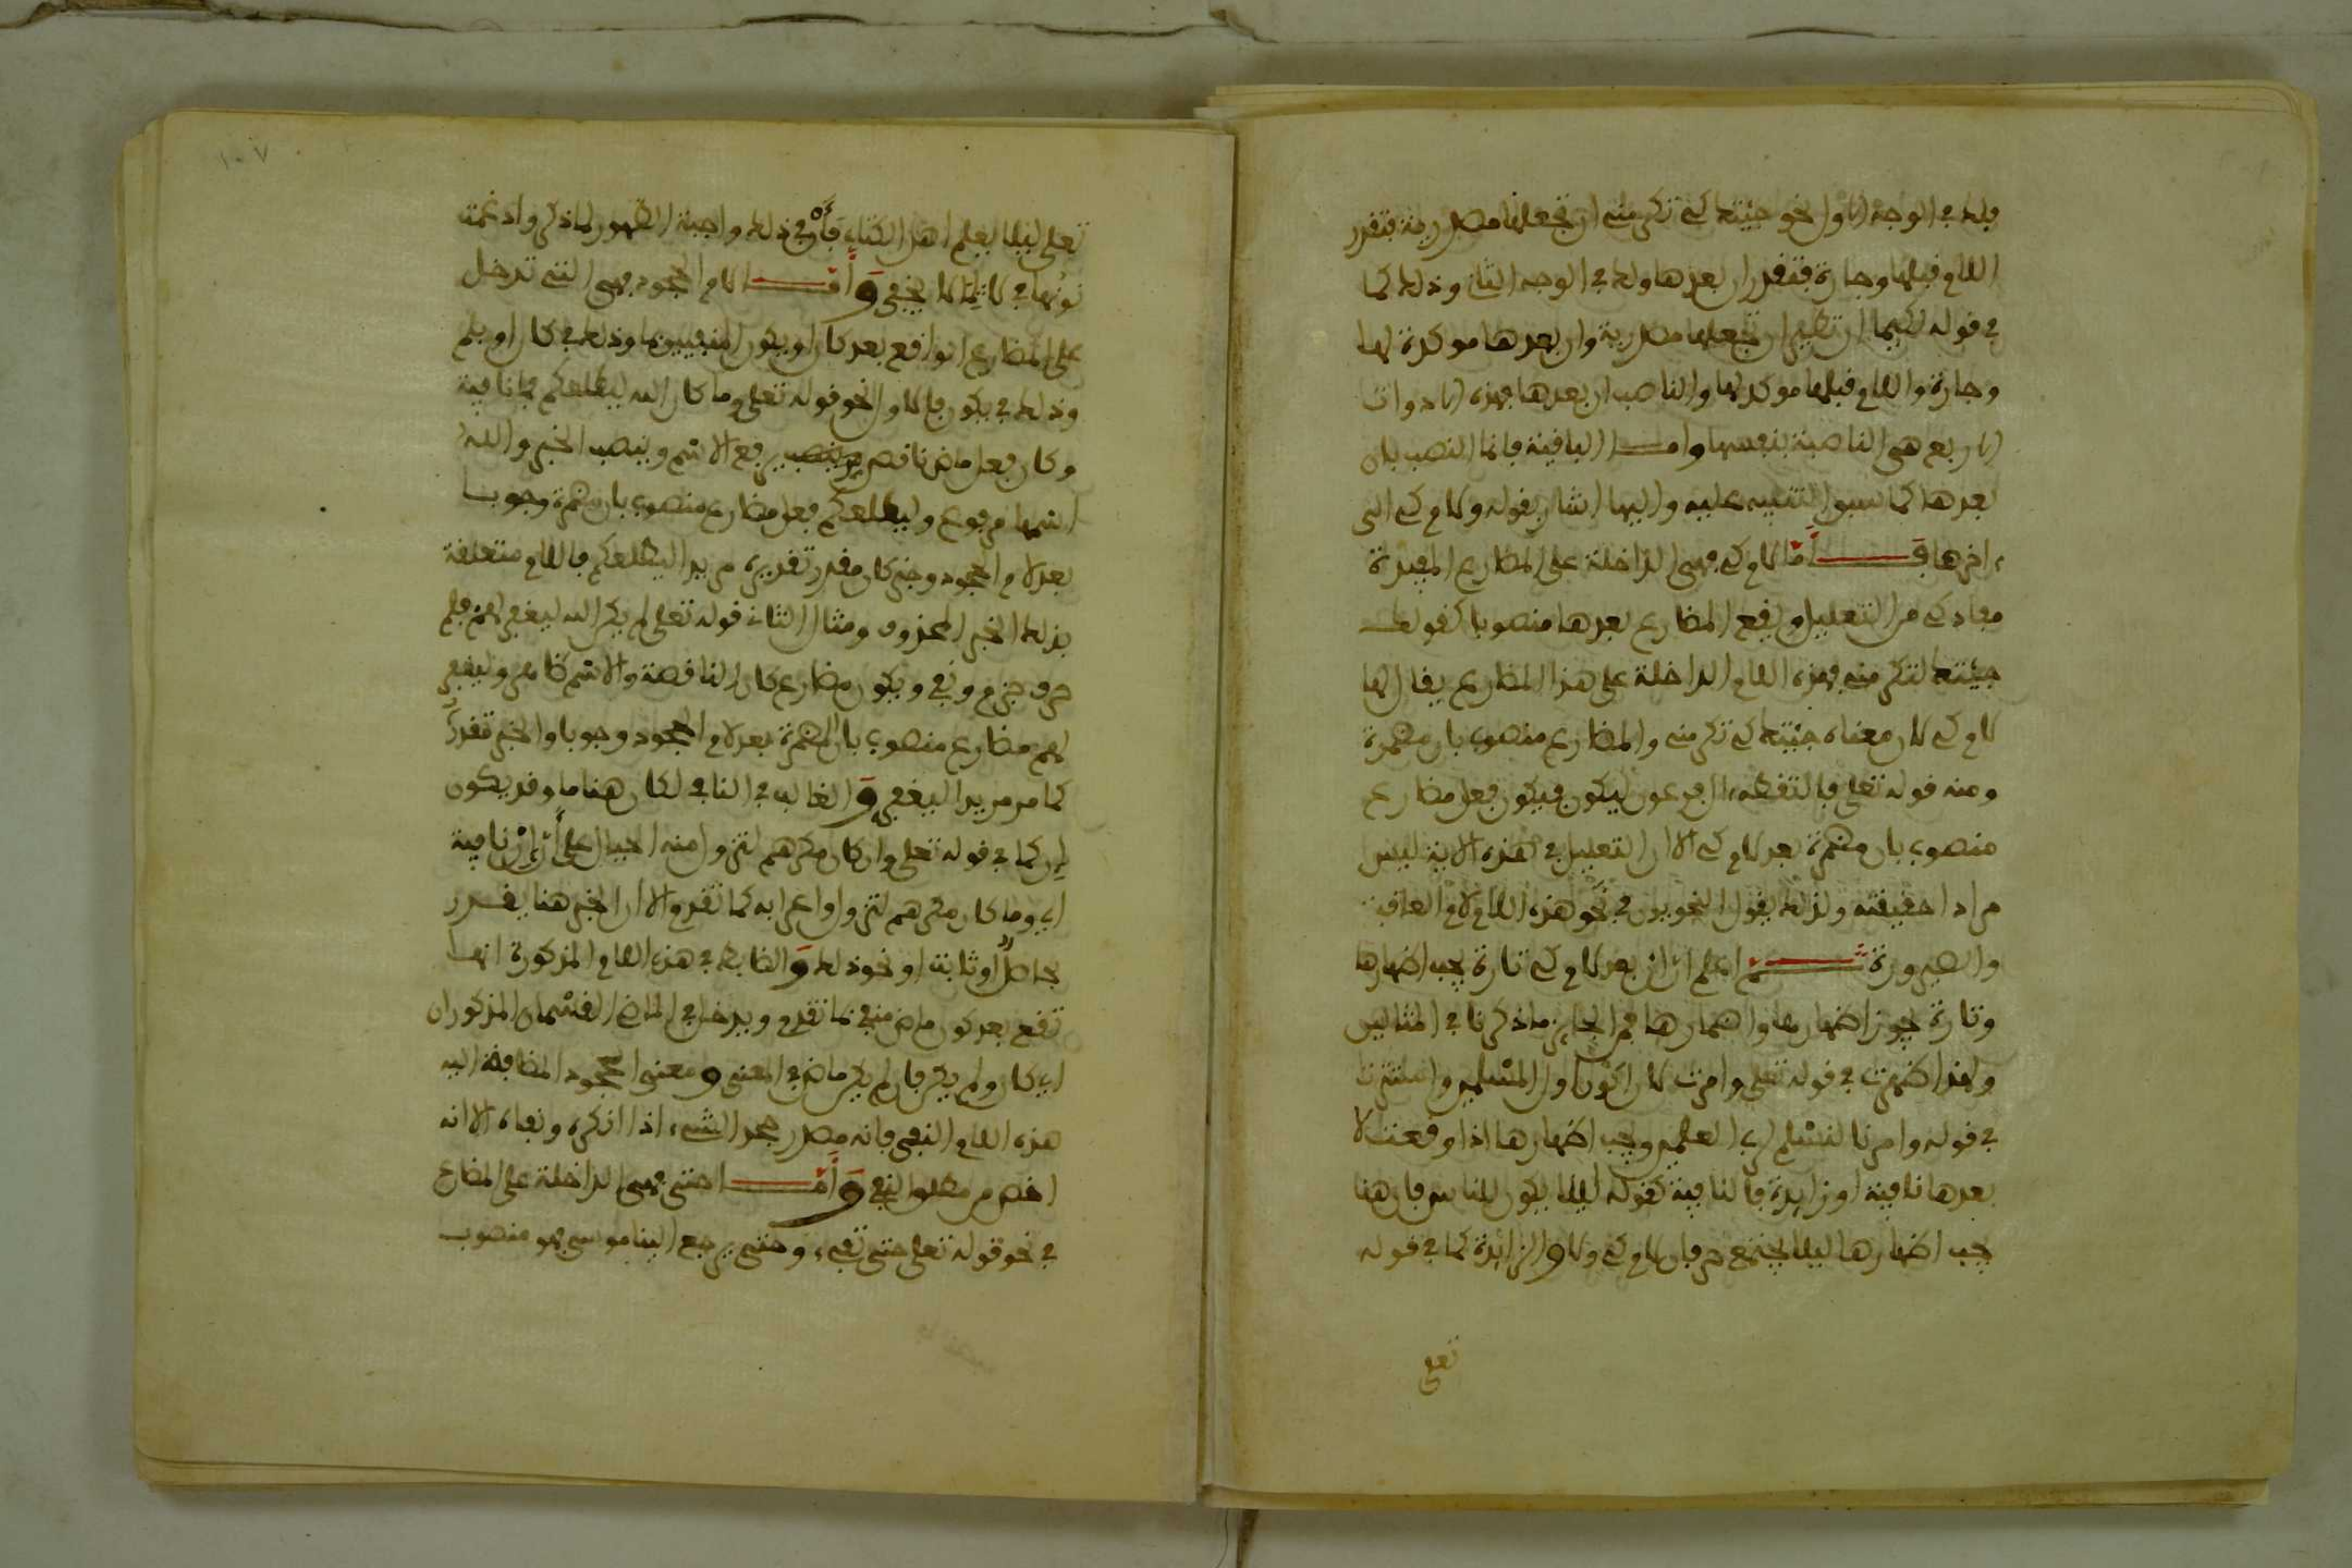 فلك في الوجه الاول نحو جئتك كي تكرمني ان تجعلها مصدرية فتقدر
اللام قبلها وجارة فتقدر ان بعدها ولك في الوجه الثاني وذلك كما
في قوله لكيما ان تطير ان تجعلها مصدرية وان بعدها موكدة لها
وجارة واللام قبلها موكدة لها والناصب ان بعدها فهذه الادوات
الاربع هي الناصبة بنفسها وامـــا الباقية فانما النصب بان
بعدها كما سبق التنبيه عليه واليها اشار بقوله ولام كي الى
ءاخرها فـــأمّا لام كي فهي الداخلة على المضارع المفيدة
مفاد كي من التعليل ويقع المضارع بعدها منصوبا كقولك
جئتك لتكرمني فهذه اللام الداخلة على هذا المضارع يقال لها
لام كي لان معناه جئتك كي تكرمني والمضارع منصوب بان مضمرة
ومنه قوله تعلى فالتقطه ءال فرعون ليكون فيكون فعل مضارع
منصوب بان مضمرة بعد لام كي الا ان التعليل في هذه الاية ليس
مرادا حقيقته ولذلك يقول النحويون في نحو هذه اللام لام العاقبة
والصيرورة ثـــم اعلم ان ان بعد لام كي تارة يجب اضهارها
وتارة يجوز اضهارها واضمارها فمن الجايز ما ذكرنا في المثالين
ولهذا اضهرت في قوله تعلى وامرت لان اكون اول المسلمين واستترت
في قوله وامرنا لنسلم لرب العلمين ويجب اضهارها اذا وقعت لا
بعدها نافية او زايدة فالنافية كقوله ليلا يكون للناس فان هنا
يجب اضهارها ليلا يجتمع حرفان لام كي ولا والزائدة كما في قوله
تعلى
١٠٧
تعلى ليلا يعلم اهل الكتاب فأن في ذلك واجبة الظهور لما ذكر وادغمت
نونها في لا لما لا يخفى وَأمّـــا لام الجحود فهي التي تدخل
على المضارع الواقع بعد كان او يكون المنفيين بما وذلك في كان او بلم
وذلك في يكون فالاول نحو قوله تعلى وما كان الله ليطلعكم فما نافية
وكان فعل ماض ناقص يرفع الاسم وينصب الخبر والله
اسمها مرفوع وليطلعكم فعل مضارع منصوب بان مضمرة وجوبا
بعد لام الجحود وخبر كان مقدر تقديره مريدا ليطلعكم فاللام متعلقة
بذلك الخبر المحذوف ومثال الثاني قوله تعلى لم يكن الله ليغفر لهم فلم
حرف جزم ونفي ويكون مضارع كان الناقصة والاسم كما مر وليغفر
لهم مضارع منصوب بان المضمرة بعد لام الجحود وجوبا والخبر تقدر
كما مر مريدا ليغفر وَالغالب في النافي لكان هنا ما وقد يكون
إن كما في قوله تعلى وان كان مكرهم لتزول منه الجبال على أن إن نافية
اي وما كان مكرهم لتزول واعرابه كما تقدم الا ان الخبر هنا يقدر
حاصلا او ثابتا او نحو ذلك وَالضابط في هذه اللام المذكورة انها
تقع بعد كون ماض منفي بما تقدم ويدخل في الماضي القسمان المذكوران
اي كان ولم يكن فان لم يكن ماض في المعنى ومعنى الجحود المضافة اليه
هذه اللام النفي فانه مصدر جحد الشيء اذا انكره ونفاه الا انه
اخص من مطلق النفي وَأمّـــا حتى فهي الداخلة على المضارع
في نحو قوله تعلى حتى تفيء وحتى يرجع الينا موسى فهو منصوب